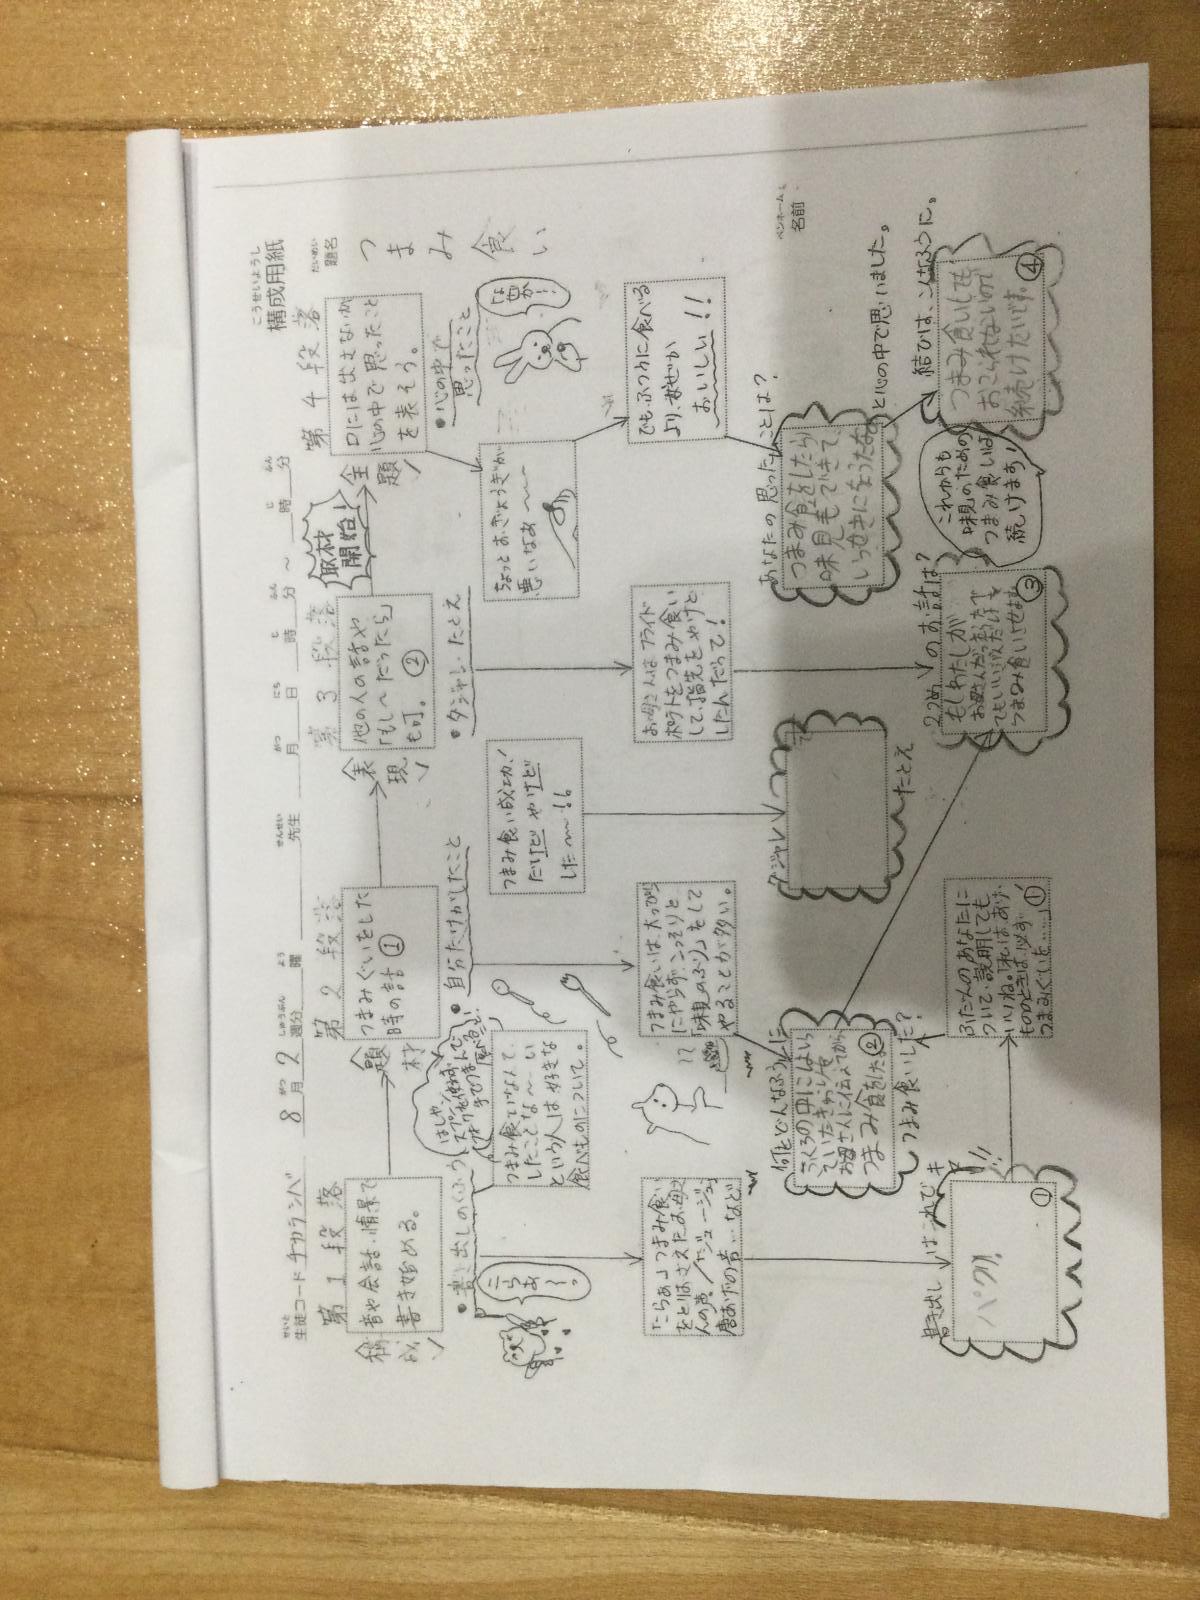 こうせいようし
構成用紙
せいと
生徒コード チカランバ
がつ
8月
しゅうぶん
2週分
よう
曜
せんせい
先生
がつ にち
月 日
じ ふん
時 分 ～
じ ふん
時 分
だいめい
題名
つまみ食い
ペンネーム：
名前：
第1段落
構成
音や会話・情景で
書き始める。
・書き出しのくふう
こらぁ～っ
「こらぁ」つまみ食い
をとりおさえたお母
さんの声／ジュージュー
唐あげの音…など
書き出しはこれでキマリ!!
パクリ
①
第2段落
題材
つまみぐいをした
時の話 ①
はしや、
スプーン、
フォークを使わず、
手でつまんで
つまみ食いなんて、
したことな～い
という人は、好きな
食べものについて。
・自分だけがしたこと
つまみ食いは、大っぴら
にやらず、こっそりと
「味見のふり」をして
やることが多い。
何をどんなふうに
つまみ食いした？
ふくろの中にはいっ
お母さんに伝えてから
つまみ食をしたよ
②
ふだんのあなたに
ついて、説明しても
いいね。「私はあげ
ものの時は、必ず
つまみぐいを……」
①
第3段落
表現
他の人の話や
「もし～だったら」
も可。 ②
・ダジャレ・たとえ
つまみ食い成功！
だけど やけど
した～!!
お母さんは フライド
ポテトをつまみ食い
して、指先をやけど
したんだって！
ダジャレ
たとえ
2つめのお話は？
もしわたしが
お母さんだったら
つまみ食いさせるよ
③
取材
開始！
第4段落
主題
口には出さないが
心の中で思ったこと
を表そう。
・心の中で
思ったこと
ちょっとおぎょうぎが
悪いなあ～～
でも、ふつうに食べる
より、なぜか
おいしい!!
あなたの思ったことは？
つまみ食をしたら
味見もできて、
いっせきにちょうだな
と心の中で思いました。
結びは、こんなふうに。
つまみ食いしても
おこられないので
続けたいです。
④
これからも
味見のための
つまみ食いは
続けます！